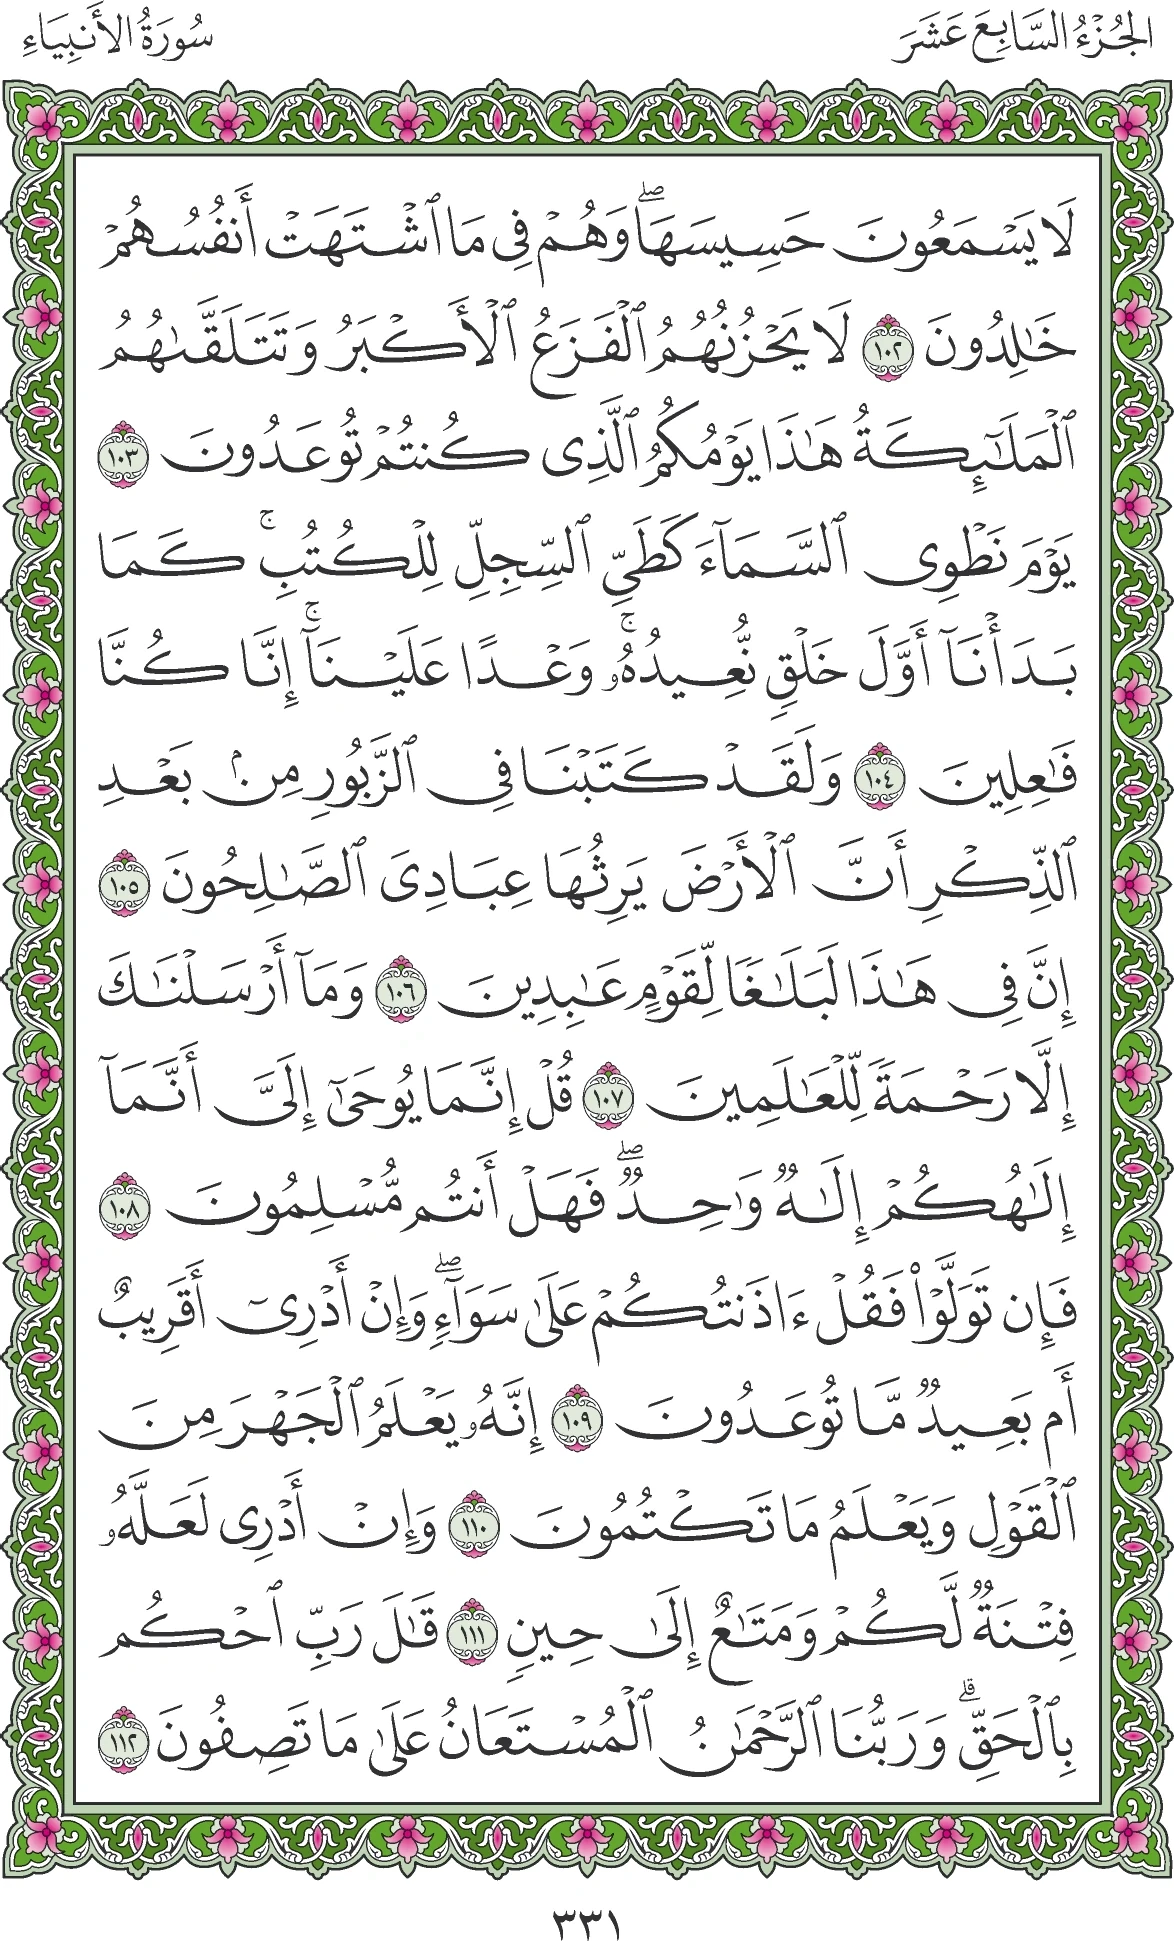 الجُزْءُ السَّابِعَ عَشَرَ
سُورَةُ الأَنبِيَاءِ
لَا يَسْمَعُونَ حَسِيسَهَاۖ وَهُمْ فِي مَا ٱشْتَهَتْ أَنفُسُهُمْ
خَٰلِدُونَ ١٠٢ لَا يَحْزُنُهُمُ ٱلْفَزَعُ ٱلْأَكْبَرُ وَتَتَلَقَّىٰهُمُ
ٱلْمَلَٰٓئِكَةُ هَٰذَا يَوْمُكُمُ ٱلَّذِى كُنتُمْ تُوعَدُونَ ١٠٣
يَوْمَ نَطْوِى ٱلسَّمَآءَ كَطَىِّ ٱلسِّجِلِّ لِلْكُتُبِۚ كَمَا
بَدَأْنَآ أَوَّلَ خَلْقٍ نُّعِيدُهُۥۚ وَعْدًا عَلَيْنَآۚ إِنَّا كُنَّا
فَٰعِلِينَ ١٠٤ وَلَقَدْ كَتَبْنَا فِى ٱلزَّبُورِ مِنۢ بَعْدِ
ٱلذِّكْرِ أَنَّ ٱلْأَرْضَ يَرِثُهَا عِبَادِىَ ٱلصَّٰلِحُونَ ١٠٥
إِنَّ فِى هَٰذَا لَبَلَٰغًا لِّقَوْمٍ عَٰبِدِينَ ١٠٦ وَمَآ أَرْسَلْنَٰكَ
إِلَّا رَحْمَةً لِّلْعَٰلَمِينَ ١٠٧ قُلْ إِنَّمَا يُوحَىٰٓ إِلَىَّ أَنَّمَآ
إِلَٰهُكُمْ إِلَٰهٌ وَٰحِدٌۖ فَهَلْ أَنتُم مُّسْلِمُونَ ١٠٨
فَإِن تَوَلَّوْا۟ فَقُلْ ءَاذَنتُكُمْ عَلَىٰ سَوَآءٍۖ وَإِنْ أَدْرِىٓ أَقَرِيبٌ
أَم بَعِيدٌ مَّا تُوعَدُونَ ١٠٩ إِنَّهُۥ يَعْلَمُ ٱلْجَهْرَ مِنَ
ٱلْقَوْلِ وَيَعْلَمُ مَا تَكْتُمُونَ ١١٠ وَإِنْ أَدْرِى لَعَلَّهُۥ
فِتْنَةٌ لَّكُمْ وَمَتَٰعٌ إِلَىٰ حِينٍ ١١١ قَٰلَ رَبِّ ٱحْكُم
بِٱلْحَقِّۗ وَرَبُّنَا ٱلرَّحْمَٰنُ ٱلْمُسْتَعَانُ عَلَىٰ مَا تَصِفُونَ ١١٢
٣٣١